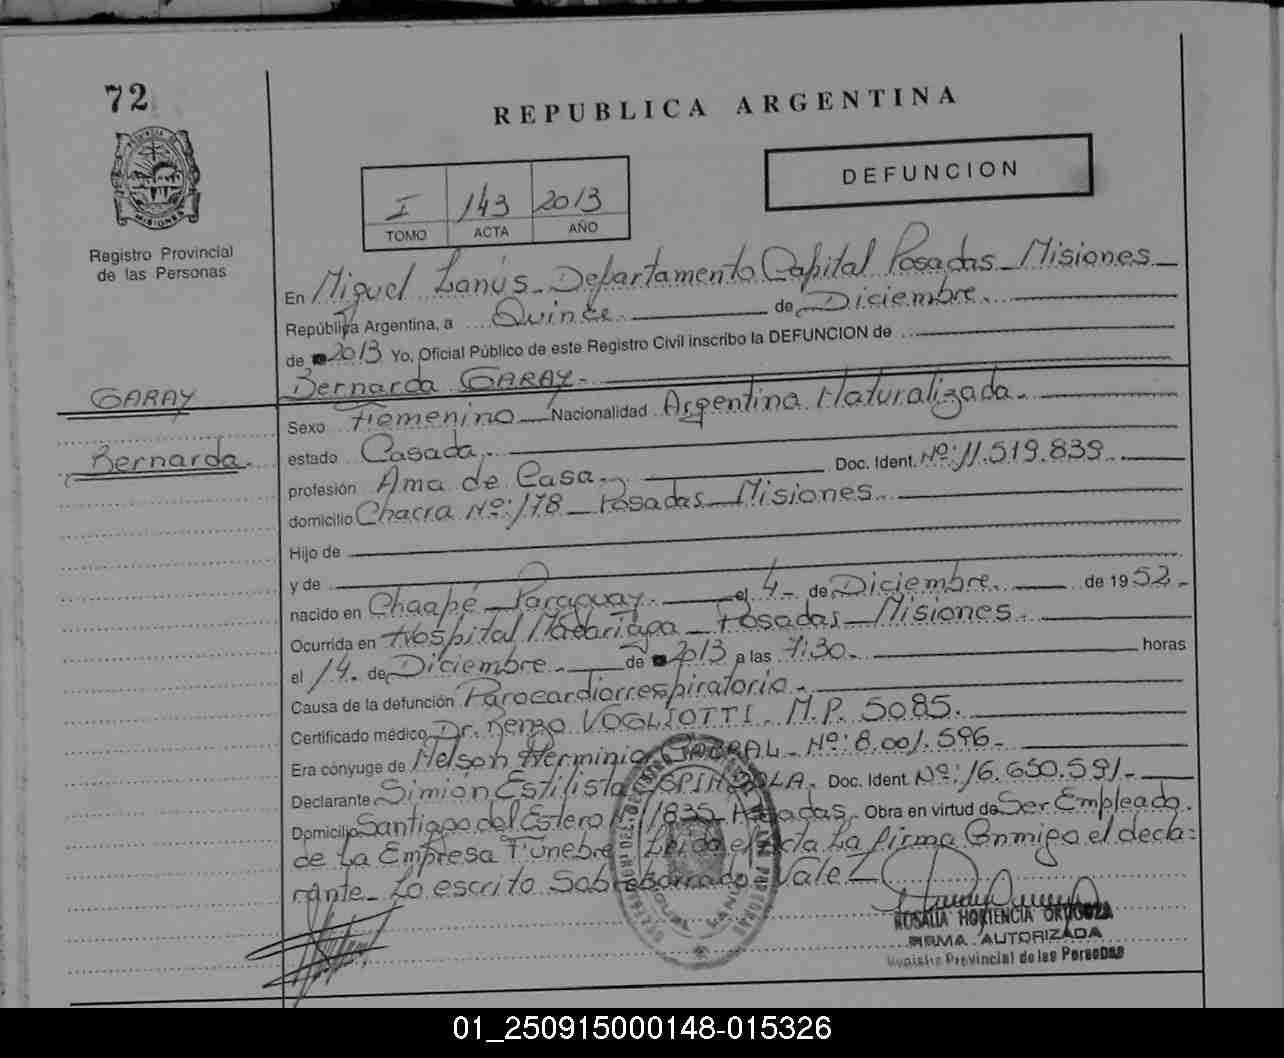 72
REPUBLICA ARGENTINA
DEFUNCION
I 143 2013
TOMO ACTA AÑO
PROVINCIA DE
MISIONES
Registro Provincial
de las Personas
En Miguel Lanús_ Departamento Capital Posadas_ Misiones_
República Argentina, a Quince de Diciembre.
de 2013 Yo, Oficial Público de este Registro Civil inscribo la DEFUNCION de
Bernarda GARAY.
GARAY
Bernarda.
Sexo Femenino_ Nacionalidad Argentina Naturalizada.
estado Casada.
profesión Ama de Casa. Doc. Ident. Nº: 11.519.839.
domicilio Chacra Nº: 178_ Posadas_ Misiones.
Hijo de
y de
nacido en Chaapé_ Paraguay. el 4_ de Diciembre. de 1952_
Ocurrida en Hospital Madariaga_ Posadas_ Misiones.
el 14. de Diciembre. de 2013 a las 7:30. horas
Causa de la defunción Parocardiorrespiratorio.
Certificado médico Dr. Renzo VOGLIOTTI. M.P. 5085.
Era cónyuge de Nelson Herminio CABRAL_ Nº: 8.001.596.
Declarante Simión Estilista ESPINDOLA. Doc. Ident. Nº: 16.650.591.
Domicilio Santiago del Estero 1835_ Posadas. Obra en virtud de Ser Empleado.
de La Empresa Fúnebre Leída el Acta La firma Conmigo el decla:
rante_ Lo escrito Sobreborrado Vale_
ROSALIA HORTENCIA
FIRMA AUTORIZADA
Registro Provincial de las Personas
01_250915000148-015326